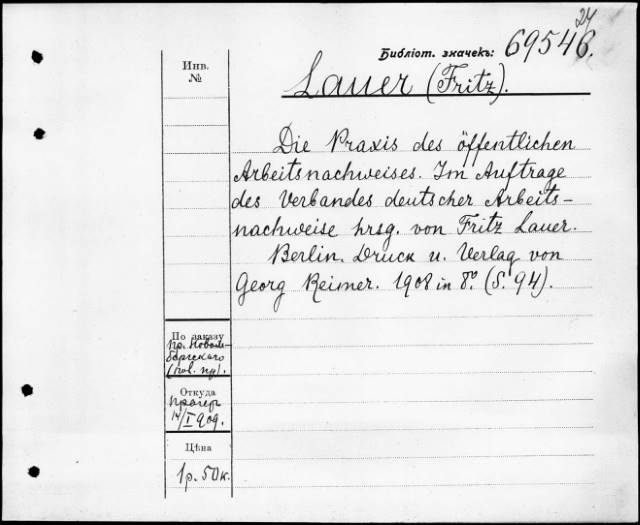 24
Библіот. значекъ: 69546.
Инв.
№
Lauer (Fritz).
Die Praxis des öffentlichen
Arbeitsnachweises. Im Auftrage
des Verbandes deutscher Arbeits-
nachweise hrsg. von Fritz Lauer.
Berlin. Druck u. Verlag von
Georg Reimer. 1908 in 8º. (S. 94).
По заказу
пр. Новом-
бергского
Откуда
14/I 909.
Цѣна
1р. 50к.